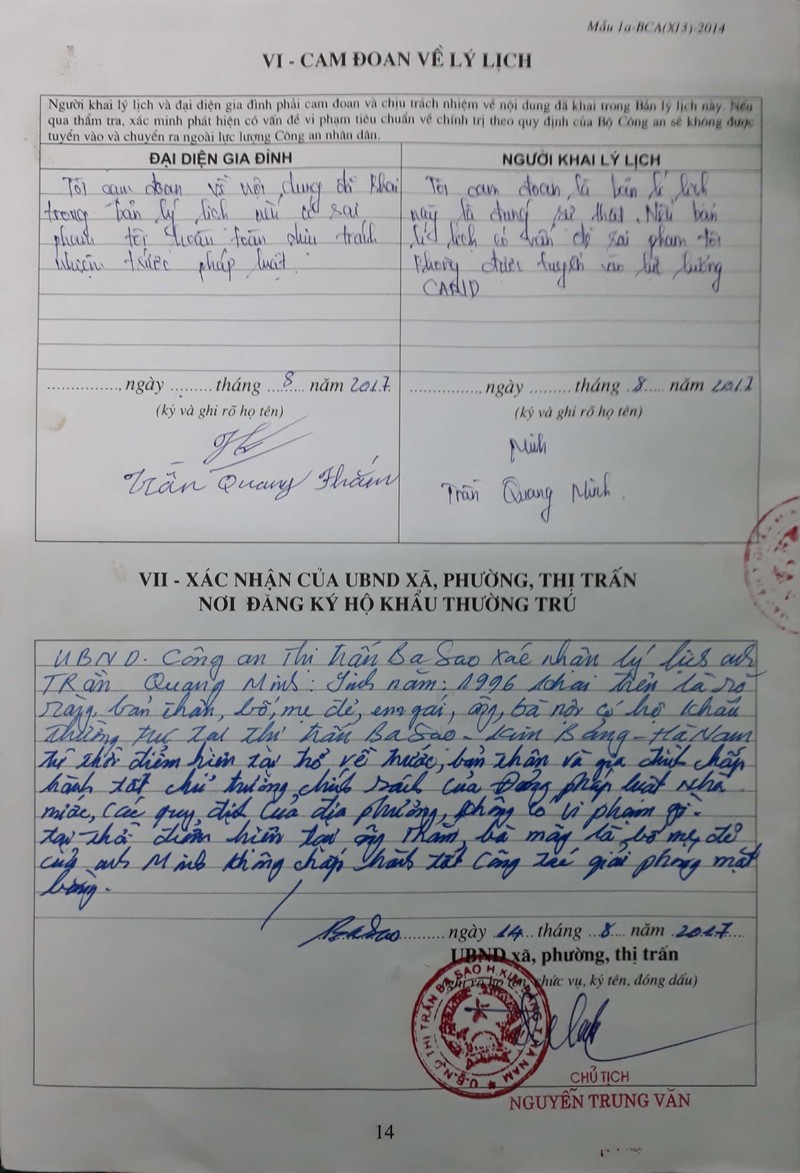 Mẫu 1a-BCA(X13)-2014
VI - CAM ĐOAN VỀ LÝ LỊCH
Người khai lý lịch và đại diện gia đình phải cam đoan và chịu trách nhiệm về nội dung đã khai trong Bản lý lịch này. Nếu
qua thẩm tra, xác minh phát hiện có vấn đề vi phạm tiêu chuẩn về chính trị theo quy định của Bộ Công an sẽ không được
tuyển vào và chuyển ra ngoài lực lượng Công an nhân dân.
ĐẠI DIỆN GIA ĐÌNH
Tôi cam đoan về nội dung đã khai
trong bản lý lịch nếu có sai
phạm tôi hoàn toàn chịu trách
nhiệm trước pháp luật.
..............., ngày ......... tháng ...8... năm 2017.
(ký và ghi rõ họ tên)
Trần Quang Thắm
NGƯỜI KHAI LÝ LỊCH
Tôi cam đoan là bản lí lịch
này là đúng sự thật. Nếu bản
lí lịch có vấn đề sai phạm tôi
không được tuyển vào lực lượng
CAND
..............., ngày ......... tháng .8... năm 2017
(ký và ghi rõ họ tên)
Minh
Trần Quang Minh.
VII - XÁC NHẬN CỦA UBND XÃ, PHƯỜNG, THỊ TRẤN
NƠI ĐĂNG KÝ HỘ KHẨU THƯỜNG TRÚ
UBND. Công an Thị trấn Ba Sao xác nhận lý lịch anh
TRần Quang Minh: Sinh năm: 1996 khai trên là rõ
ràng, bản thân, bố, mẹ đẻ, em gái, ông, bà nội có hộ khẩu
thường trú tại thị trấn Ba Sao - Kim Bảng - Hà Nam
từ thời điểm hiện tại trở về trước, bản thân và gia đình chấp
hành tốt chủ trương, chính sách của Đảng pháp luật nhà
nước, các quy định của địa phương, không có vi phạm gì.
tại thời điểm hiện tại ông Thắm, bà mây là bố mẹ đẻ
của anh Minh không chấp hành tốt công tác giải phóng mặt
bằng.
Ba Sao.........., ngày 14... tháng ...8.... năm .2017....
UBND xã, phường, thị trấn
(ghi rõ họ tên, chức vụ, ký tên, đóng dấu)
U.B.N.D THỊ TRẤN BA SAO H. KIM BẢNG T. HÀ NAM
CHỦ TỊCH
NGUYỄN TRUNG VĂN
14